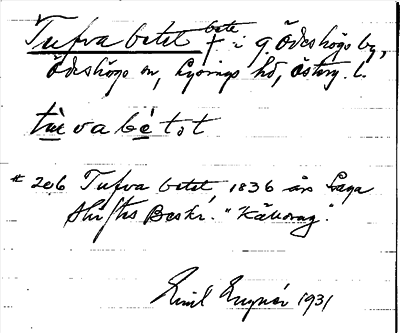 Tufva betet bete † i g. Ödeshögs by,
Ödeshögs sn, Lysings hd, Österg. l.
tùvabètət
# 206 Tufva betet, 1836 års Laga
skiftes Beskr. "Kälvhag".
Emil 1931